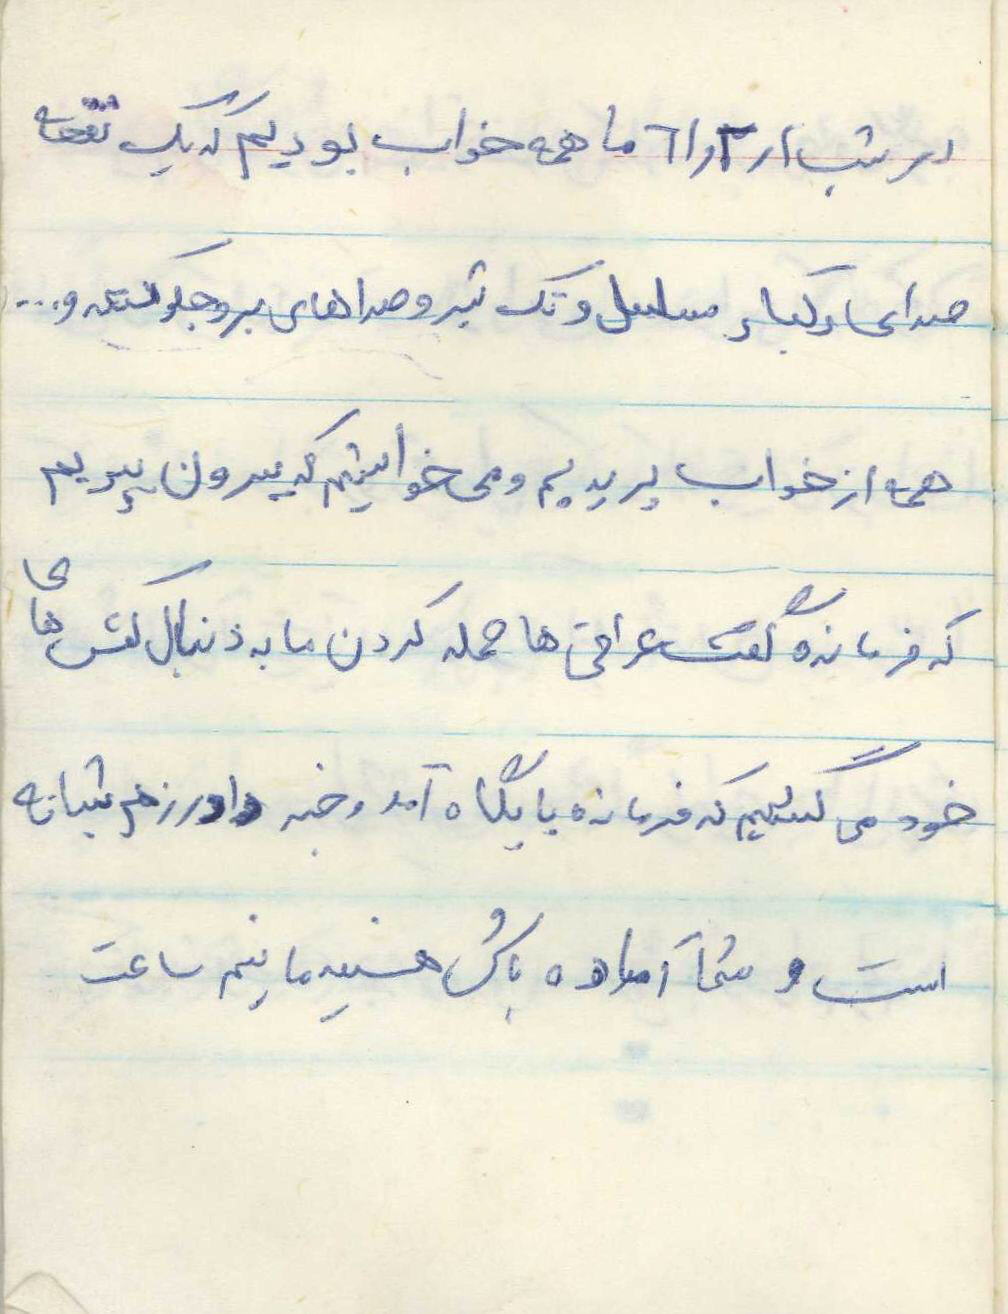 در شب ۱ر۳ر۶۱ ما همه خواب بودیم که یک دفعه
صدای رگبار مسلسل و تک تیر و صداهای برو جلو و...
همه از خواب پریدیم و می خواستیم که بیرون بپریم
که فرمانده گفت عراقی ها حمله کردن ما به دنبال کفش های
خود می گشتیم که فرمانده پایگاه آمد و خبر داد رزم شبانه
است و شما آماده باش هستید ما نیم ساعت